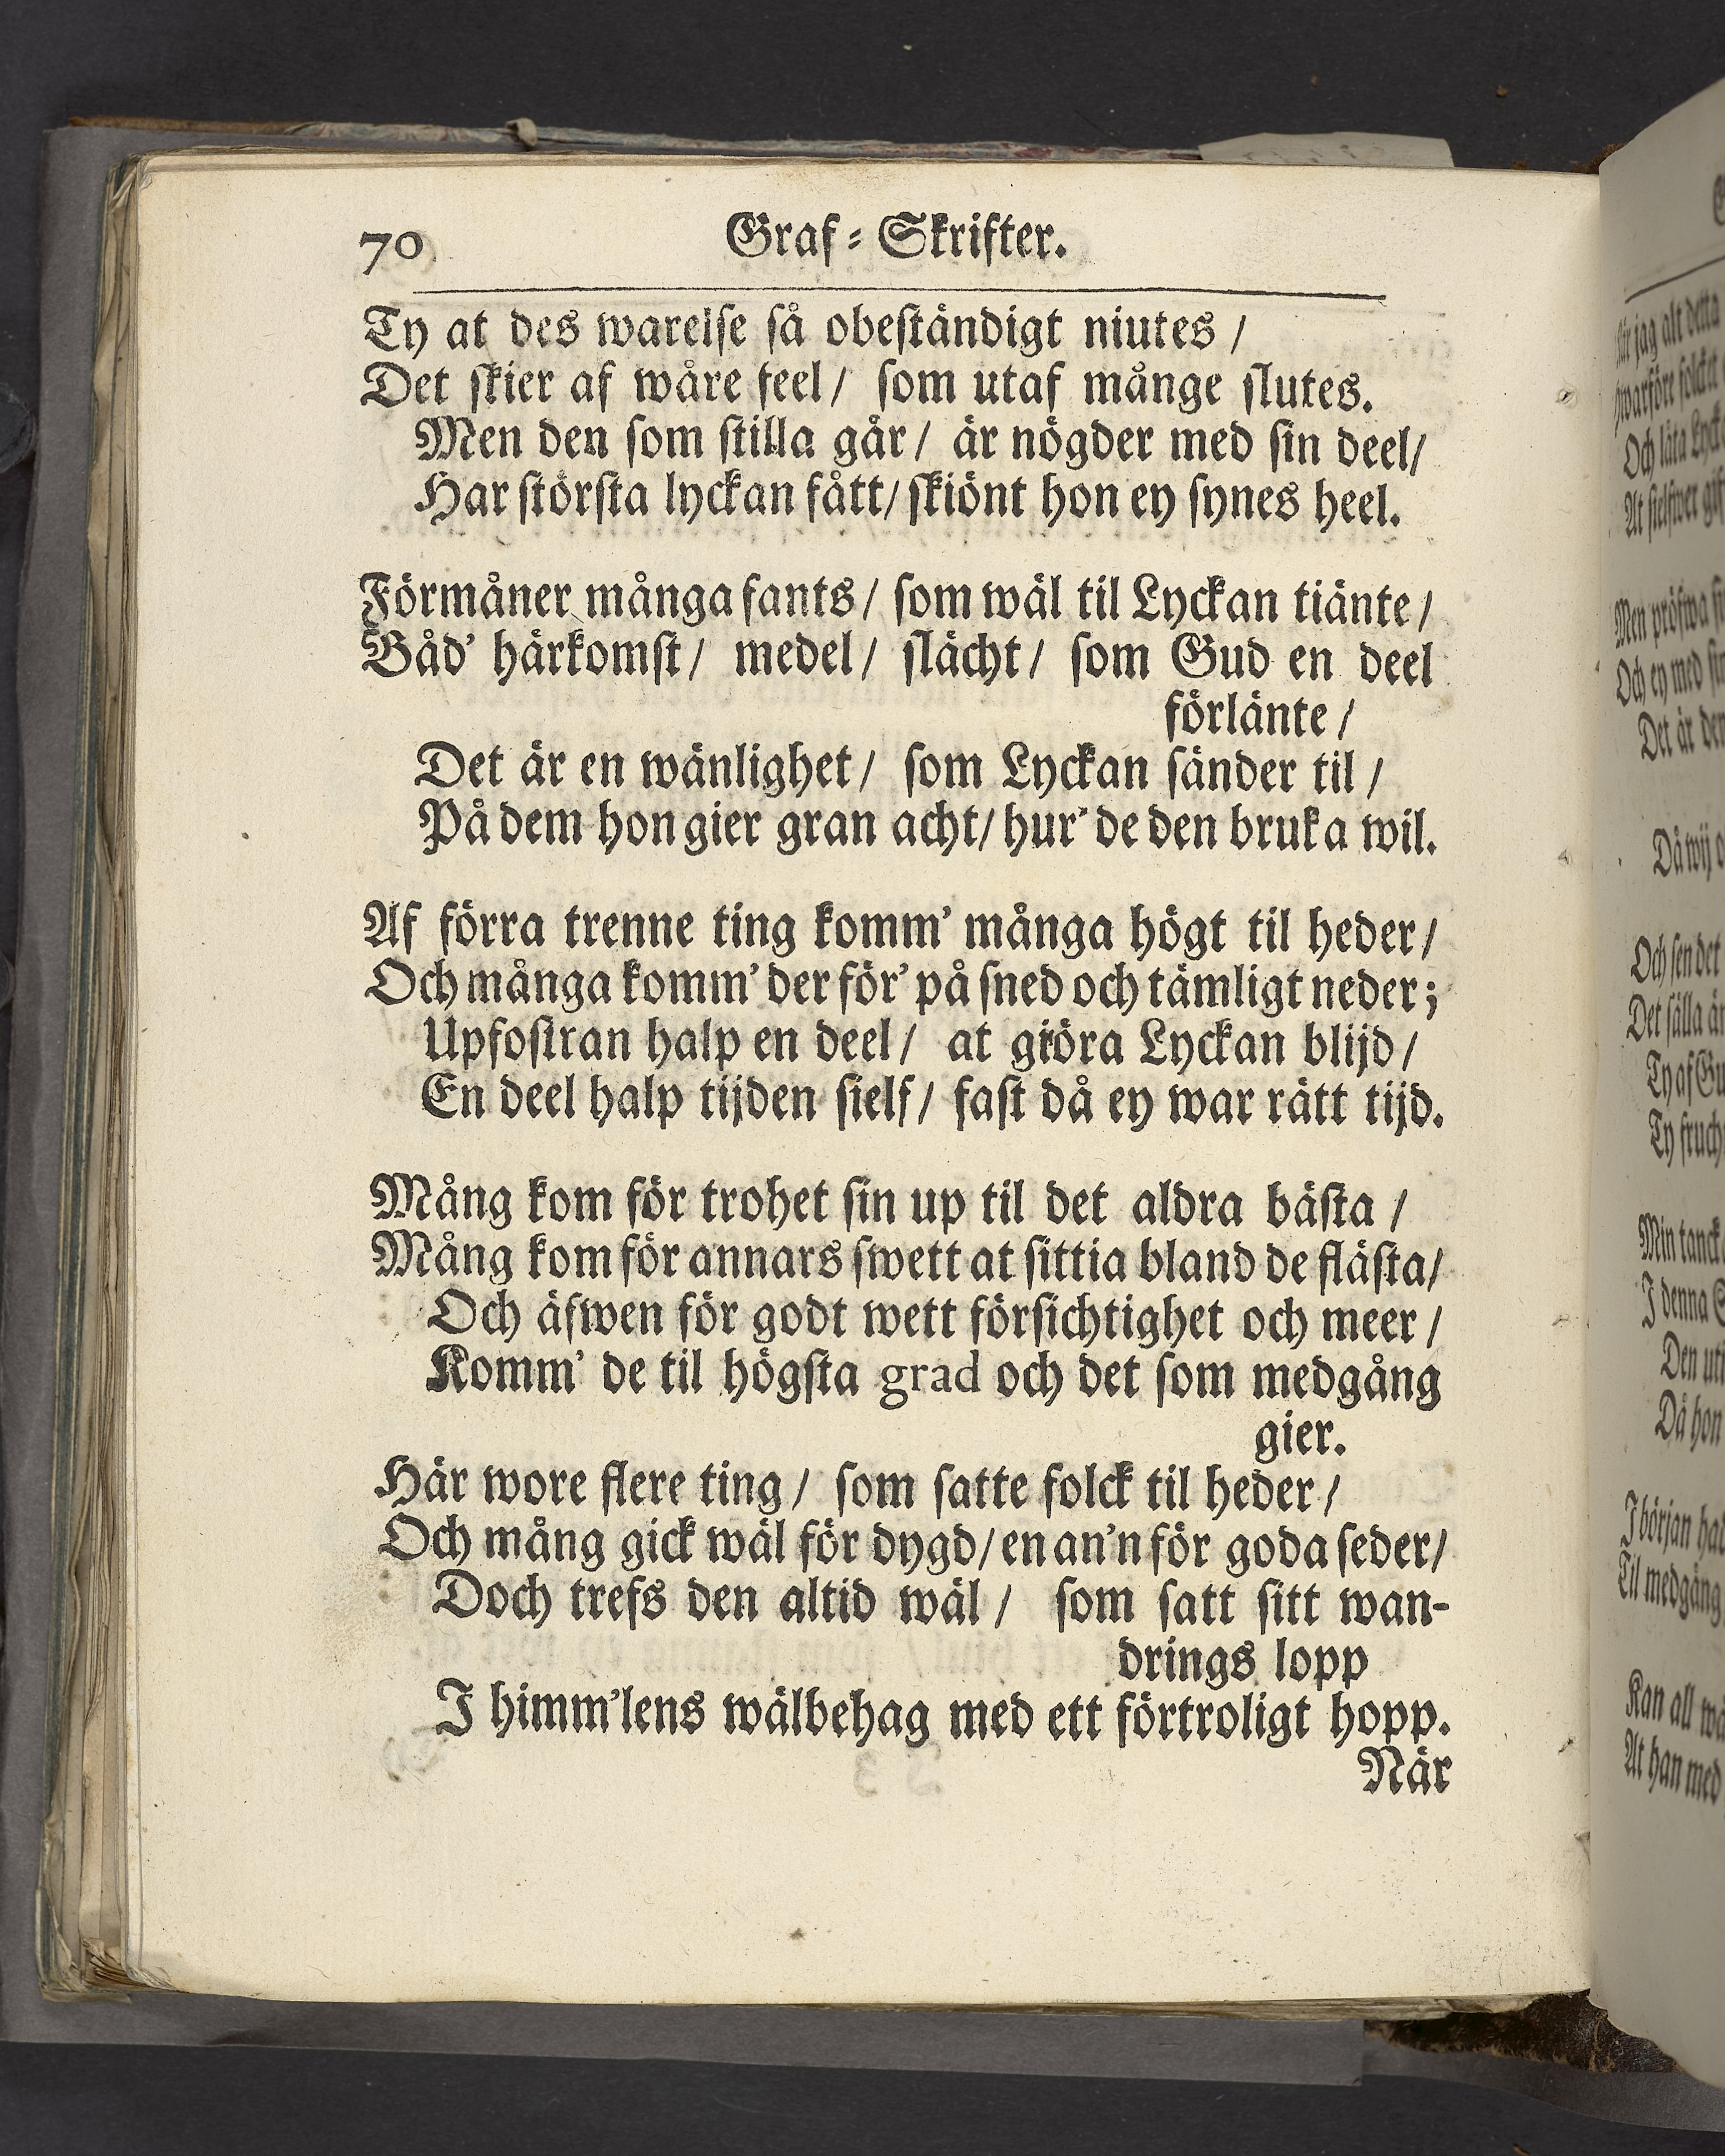 70 Graf-Skrifter.
Ty at des warelse så obeständigt niutes /
Det skier af wåre feel / som utaf månge slutes.
Men den som stilla går / är nögder med sin deel /
Har största lyckan fått / skiönt hon ey synes heel.
Förmåner många fants / som wäl til Lyckan tiänte /
Båd' härkomst / medel / slächt / som Gud en deel
förlänte /
Det är en wänlighet / som Lyckan sänder til /
På dem hon gier gran acht / hur' de den bruka wil.
Af förra trenne ting komm' många högt til heder /
Och många komm' der för' på sned och tämligt neder;
Upfostran halp en deel / at giöra Lyckan blijd /
En deel halp tijden sielf / fast då ey war rätt tijd.
Mång kom för trohet sin up til det aldra bästa /
Mång kom för annars swett at sittia bland de flästa /
Och äfwen för godt wett försichtighet och meer /
Komm' de til högsta grad och det som medgång
gier.
Här wore flere ting / som satte folck til heder /
Och mång gick wäl för dygd / en an'n för goda seder /
Doch trefs den altid wäl / som satt sitt wan-
drings lopp
I himm'lens wälbehag med ett förtroligt hopp.
När
jag alt detta
Och låta
At
Men pröfwa
Och ey med
Det är
Då wij
Och sen det
Det sälla
Ty af
Ty
Min
I denna
Den
Då hon
I början
Til medgång
Kan all
At han med